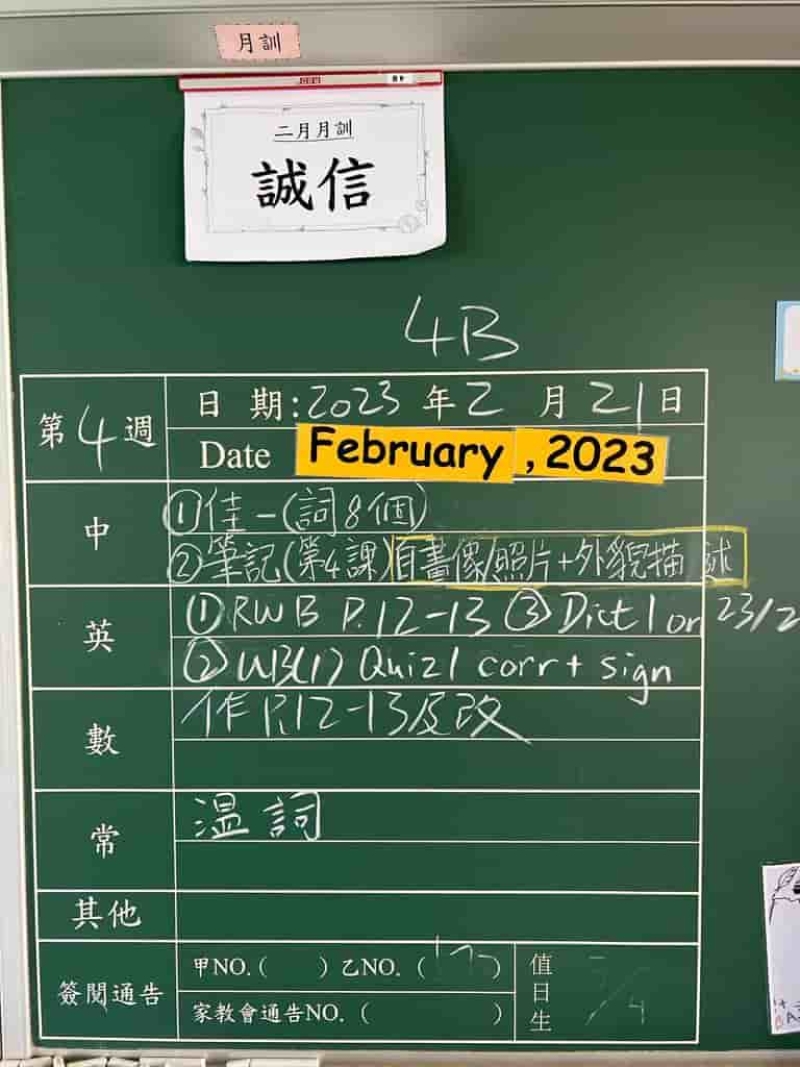 月訓
二月月訓
誠信
4B
第4週
日 期:2023 年 2 月 21 日
Date February , 2023
中
①佳一(詞8個)
②筆記(第4課)自畫像/照片+外貌描述
英
①RWB P.12-13 ③Dict 1 on 23/2
②WB(1) Quiz1 corr + sign
數
作P.12-13及改
常
溫詞
其他
簽閱通告
甲NO.( ) 乙NO. ( )
家教會通告NO. ( )
值日生